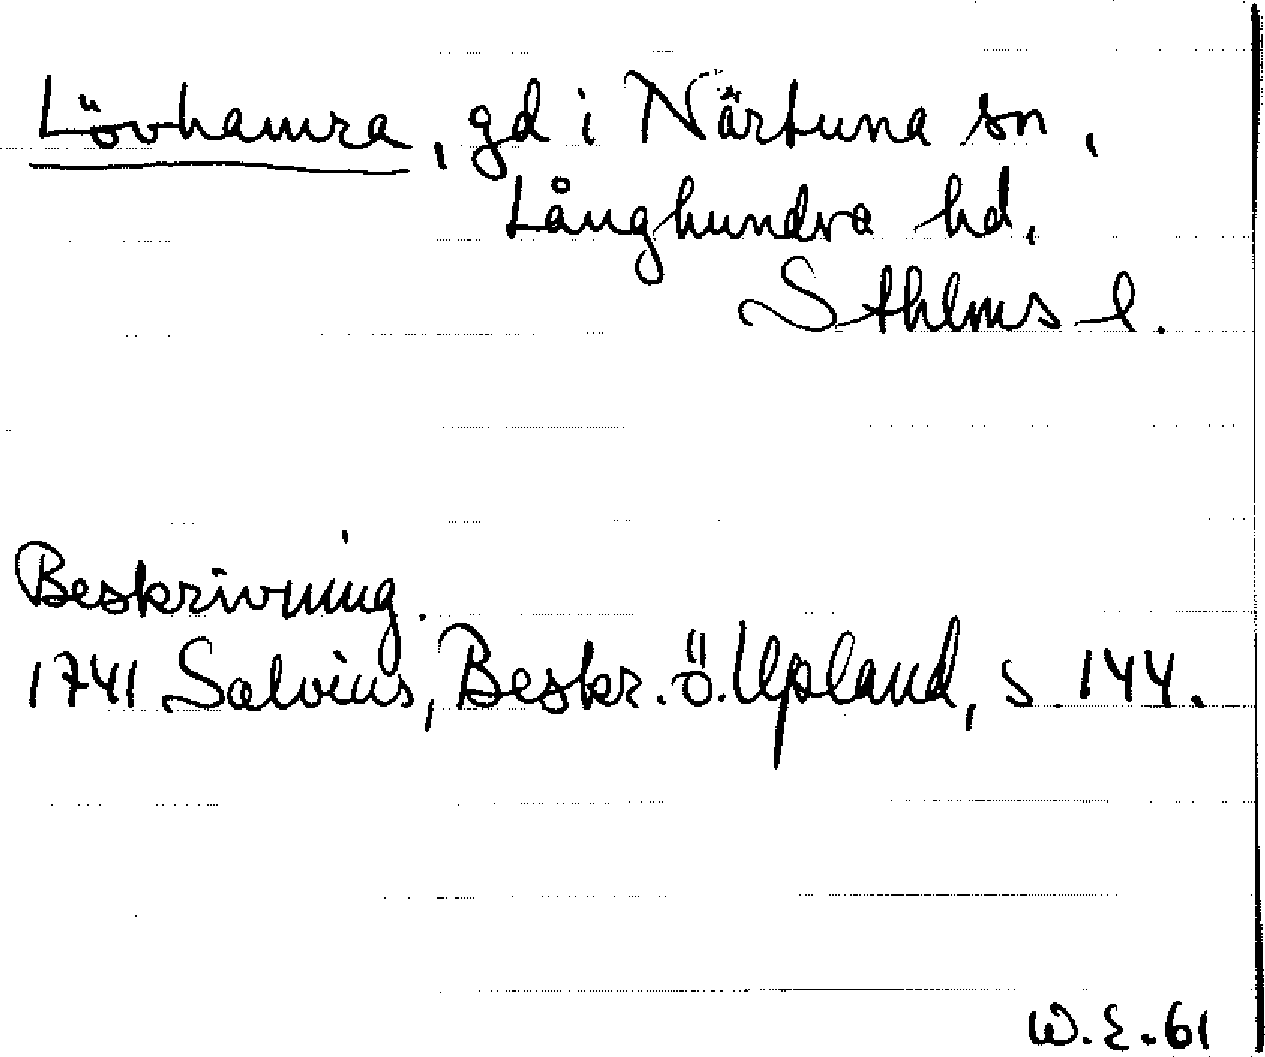 Lövhamra, gd i Närtuna sn,
Långhundra hd,
Sthlms l.
Beskrivning.
1741 Salvius, Beskr. ö. Upland, s. 144.
W.E.61